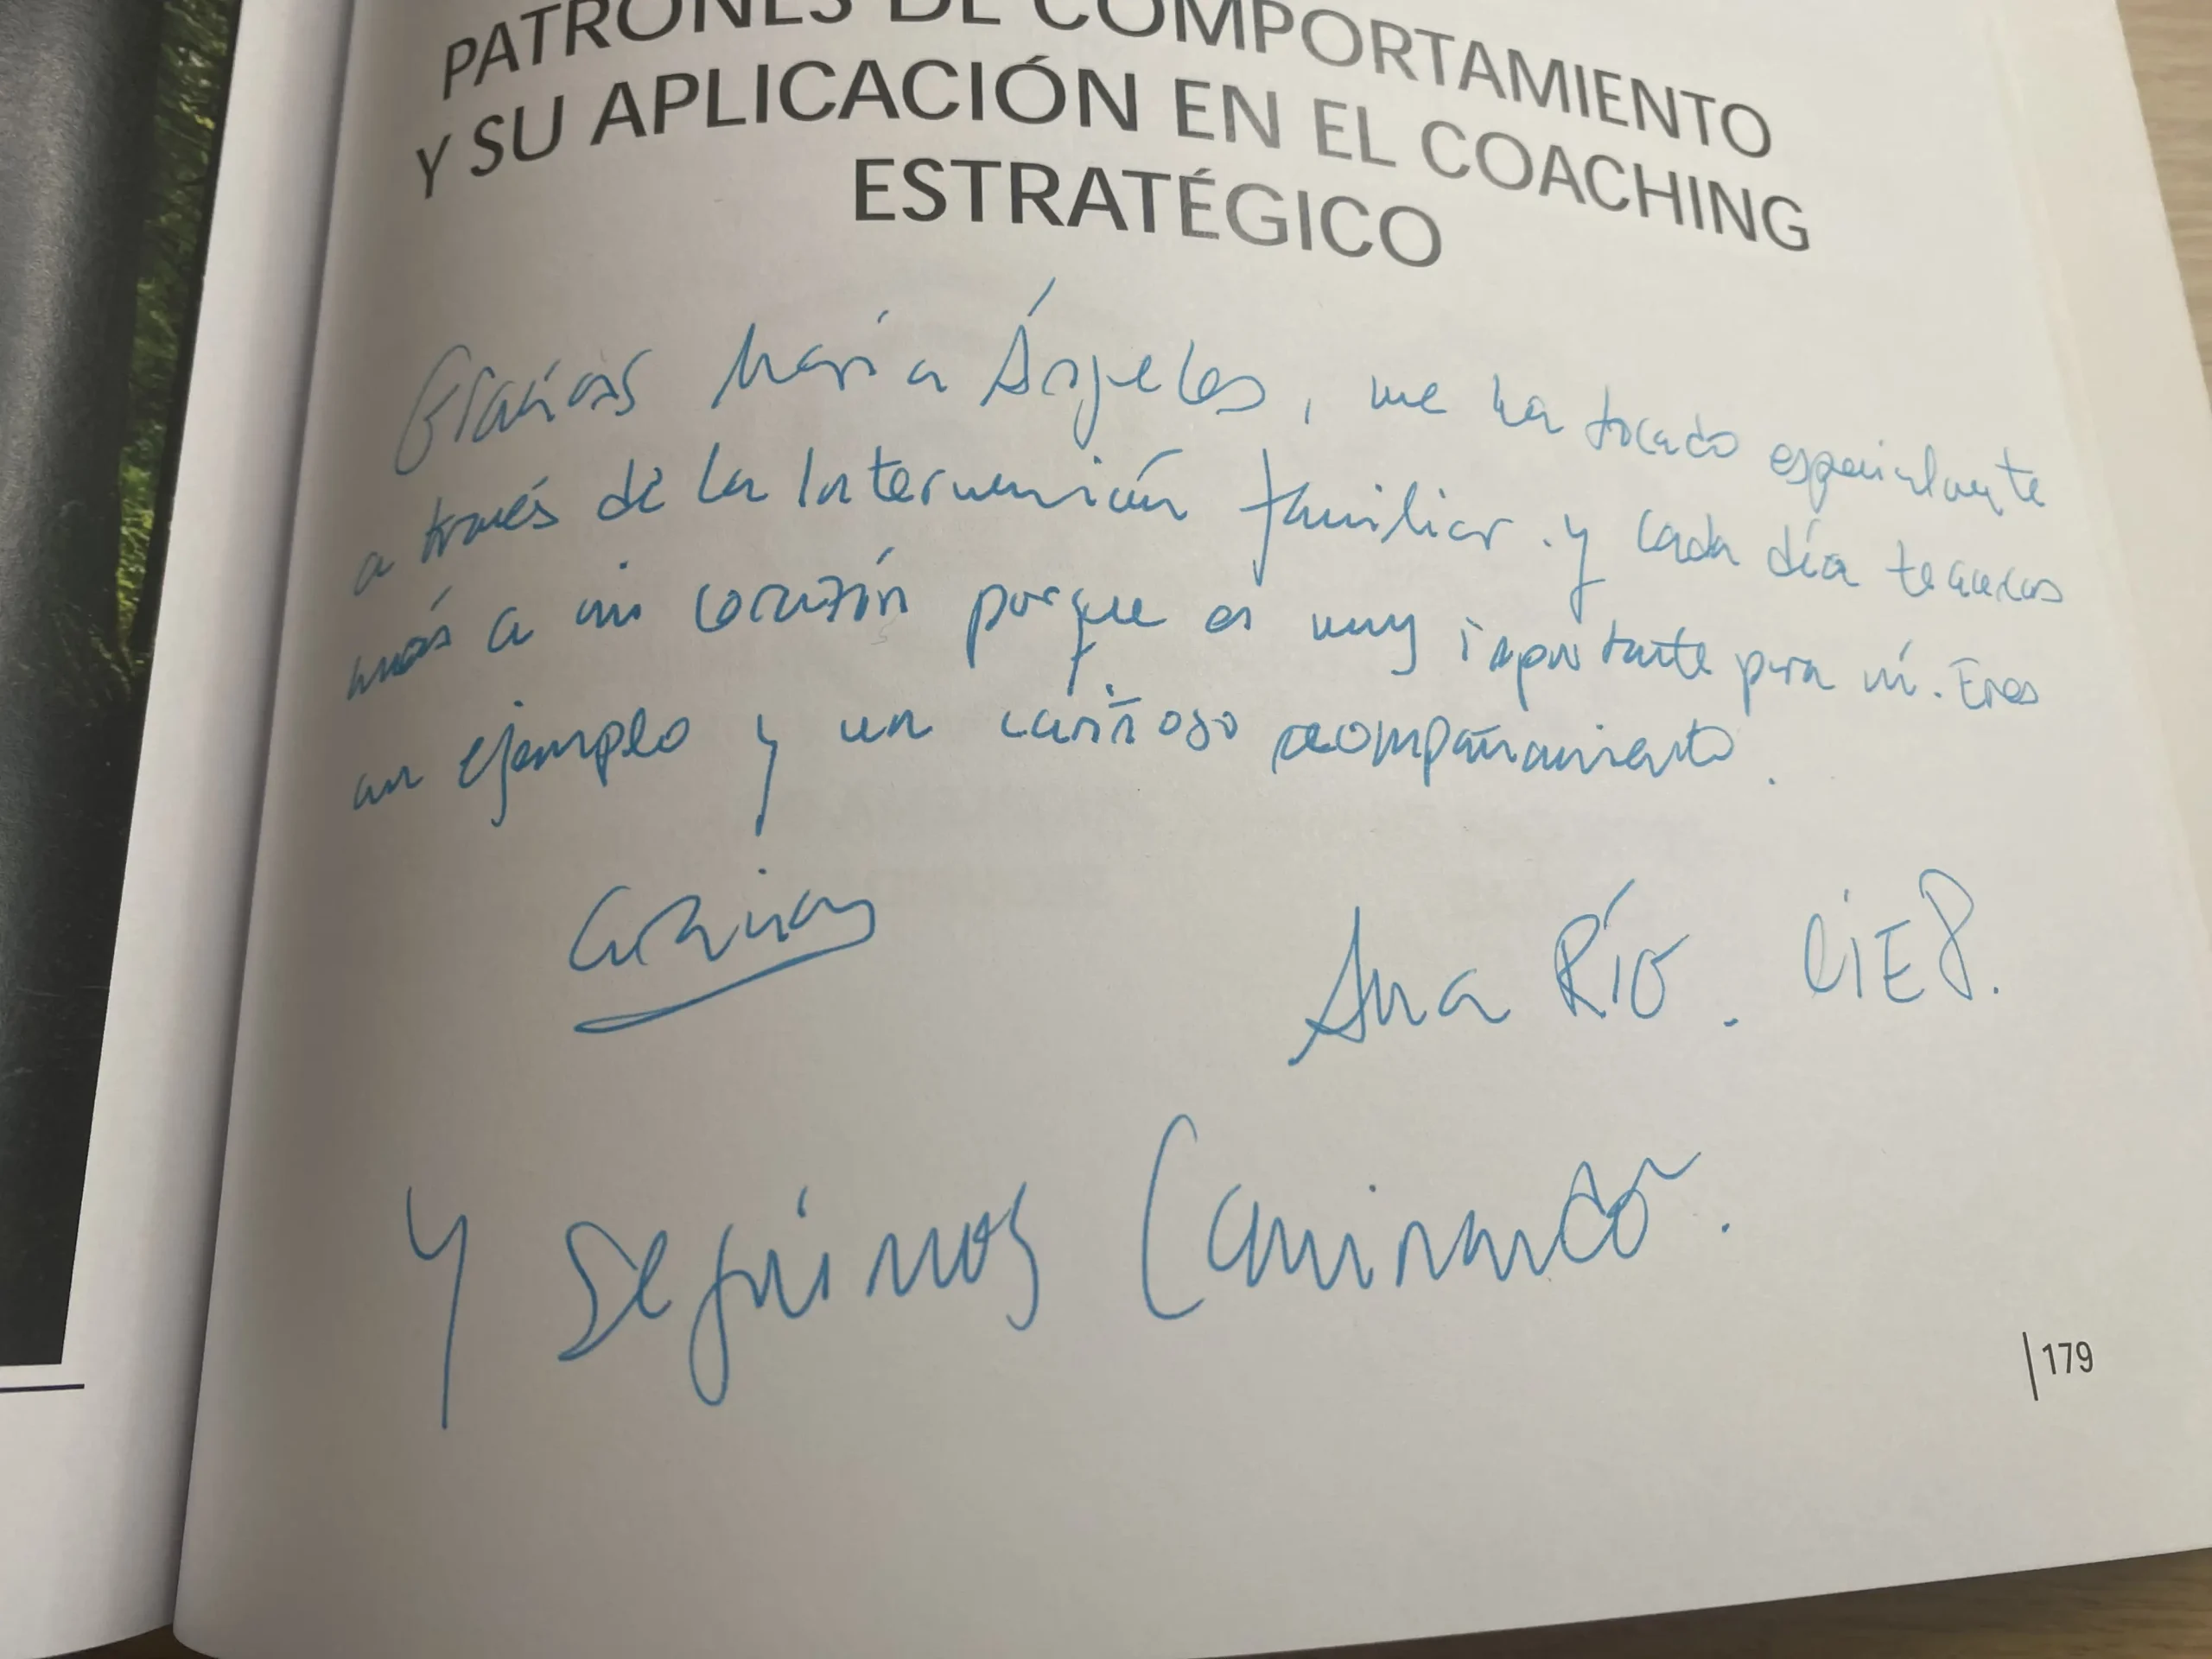 PATRONES DE COMPORTAMIENTO
Y SU APLICACIÓN EN EL COACHING
ESTRATÉGICO
Gracias María Ángeles, me ha tocado especialmente
a través de la Intervención familiar. y cada día te acercas
más a mi corazón porque es muy importante para mí. Eres
un ejemplo y un cariñoso acompañamiento.
Gracias
Ana Río. CIEP.
Y seguimos Caminando.
179